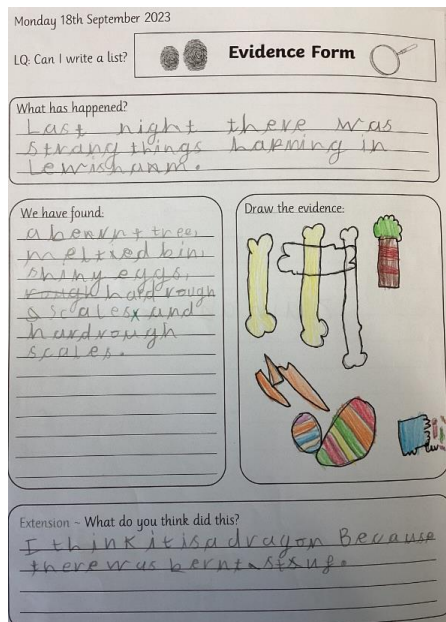 Monday 18th September 2023
LQ: Can I write a list?
Evidence Form
What has happened?
Last night there was
strang things hapning in
Lewishanm.
We have found:
a bernnt tree,
meltied bin,
shiny eggs,
rough hard rough
scales and
hard rough
scales.
Draw the evidence:
Extension - What do you think did this?
I think it is a dragon Because
there was bernt stuf.